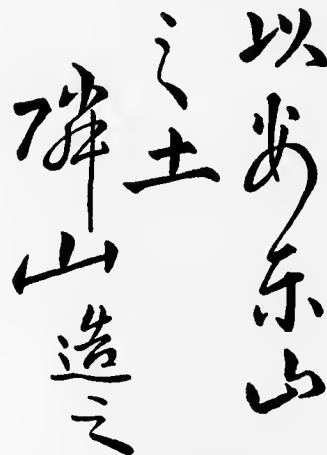 以安東山
之土
隣山造之